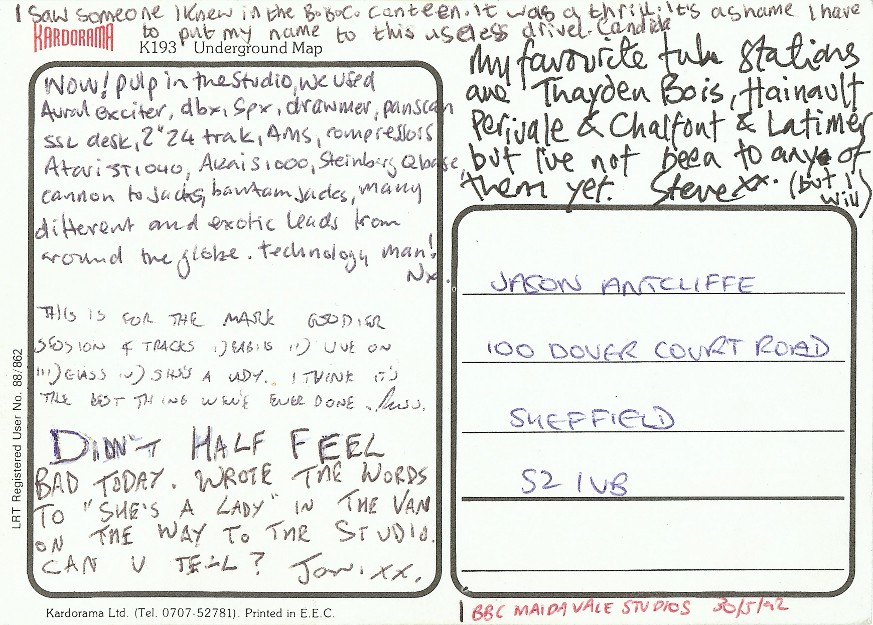 I saw someone I knew in the BoBoCo canteen. It was a thrill. It's a shame I have
to put my name to this useless drivel. Candida
KARDORAMA
K193 Underground Map
Wow! pulp in the studio, we used
Aural exciter, dbx, Spx, drawmer, panscan
SSL desk, 2" 24 trak, AMS, compressors
Atari ST1040, Akai S1000, Steinberg Qbase,
cannon to jacks, bantam jacks, many
different and exotic leads from
around the globe. technology man!
Nx.
THIS IS FOR THE MARK GOODIER
SESSION 4 TRACKS I) BABIES II) LIVE ON
III) GLASS IV) SHE'S A LADY. I THINK IT'S
THE BEST THING WE'VE EVER DONE. Russ.
DIDN'T HALF FEEL
BAD TODAY. WROTE THE WORDS
TO "SHE'S A LADY" IN THE VAN
ON THE WAY TO THE STUDIO.
CAN U TELL? Jarv. xx.
My favourite tube stations
are Thayden Bois, Hainault
Perivale & Chalfont & Latimer
but I've not been to any of
them yet. Steve xx. (but I
will)
JASON ANTCLIFFE
100 DOVER COURT ROAD
SHEFFIELD
S2 1UB
LRT Registered User No. 88/862
Kardorama Ltd. (Tel. 0707-52781). Printed in E.E.C.
BBC MAIDA VALE STUDIOS 30/5/92